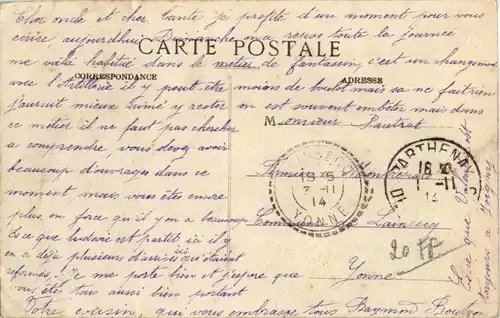 Cher oncle et cher tante je profite d'un moment pour vous
ecrire, aujourdhui Dimanche on a repos toute la journée
CARTE POSTALE
me voilà habitué dans le métier de fantassin, c'est un changement
CORRESPONDANCE
ADRESSE
avec l'Artillerie il y a peut être moins de boulot mais sa ne fait rien
j'aurait mieux aimé y rester on est souvent embêté mais dans
ce métier il ne faut pas chercher
a comprendre, vous devez avoir
beaucoup d'ouvrages dans ce
moment, mais vous êtes encore
plus en force qu'il y en a beaucoup
Es ce que ludovic est parti ici il y
en a déja plusieurs d'arrivés qui étaient
réformés. Je me porte bien et j'espère que
vous êtes tous aussi bien portant
Votre cousin, qui vous embrasse tous Raymond
Monsieur Sautrat
Lainsecq
Yonne
19 5
7 - 11
14
YONNE
PARTHENAY
16
1 - 11
14
20 ff
Es ce que est
toujours a